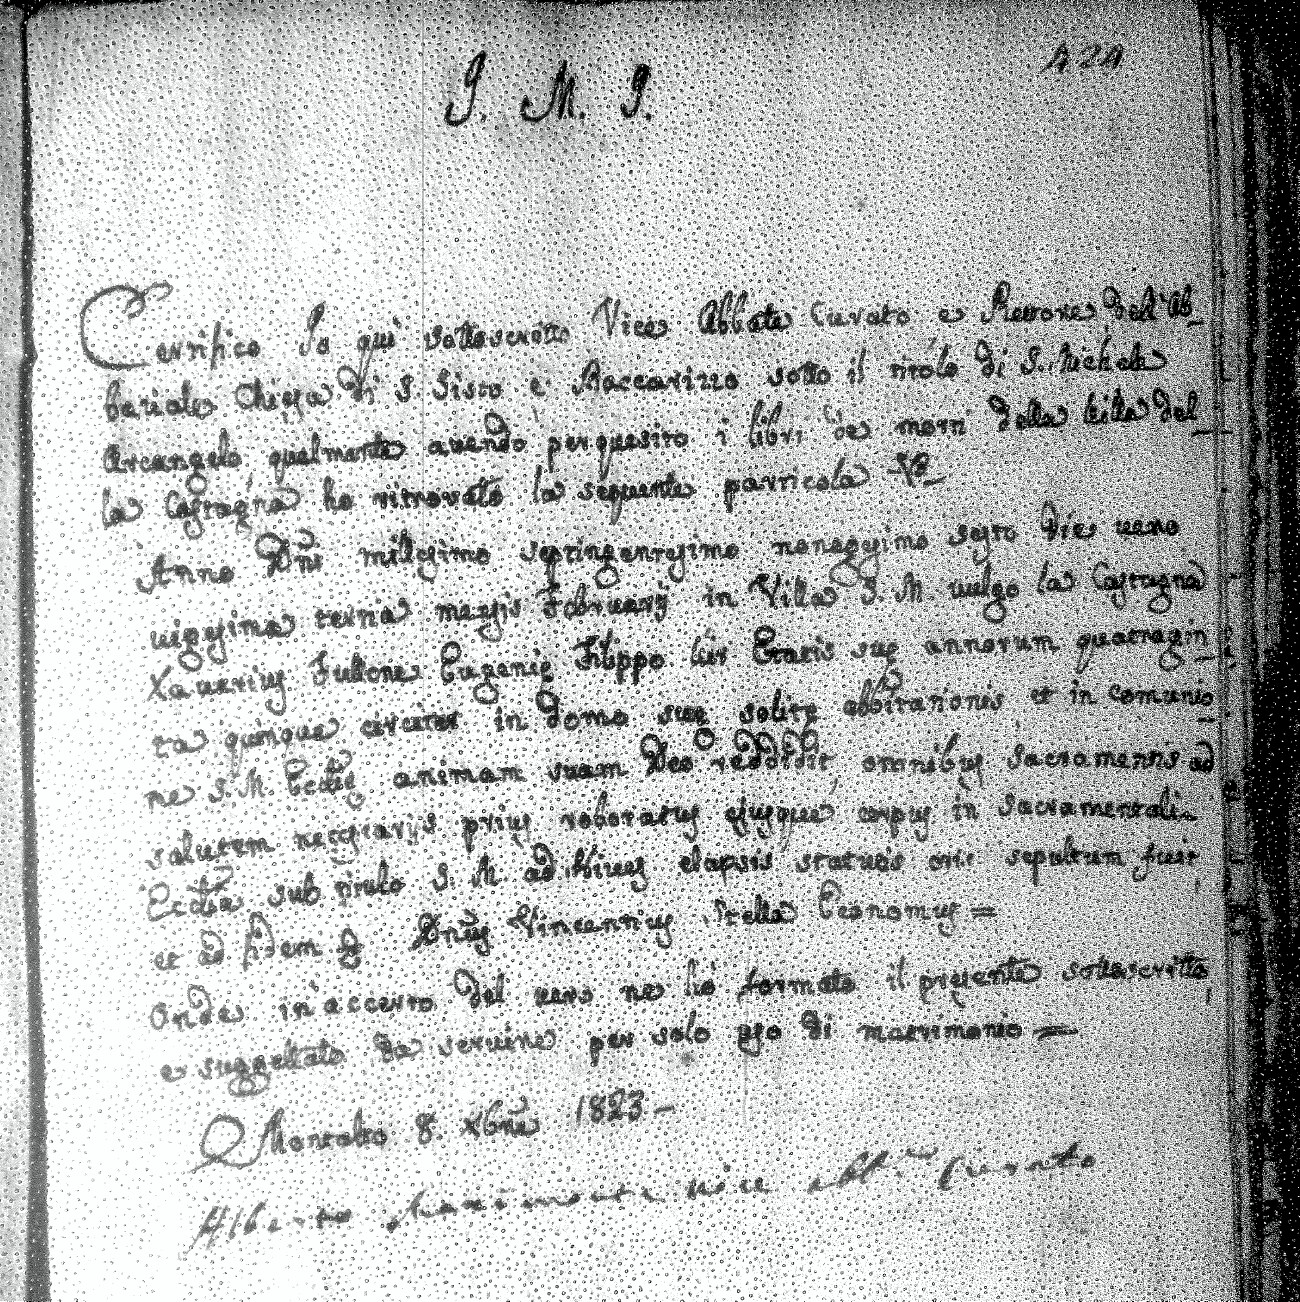 424
J. M. J.
Certifico Io quì sottoscritto Vice Abbate Curato e Rettore dell'Ab-
baziale Chiesa di S. Sisto e Baccarizzo sotto il titolo di S. Michele
Arcangelo qualmente avendo perquesito i libri de morti della Villa del-
la Castagna ho ritrovato la seguente particola
Anno Dñi millesimo septingentesimo nonagesimo sexto Die vero
vigesima terna mensis Februarij in Villa S. M. vulgo la Castagna
Xaverius Eugenię Filippo Vir Etatis suę annorum quatragin-
ta quinque circiter in domo suę solitę abbitationis et in comunio-
ne S. M. Ecclię animam suam Deo reddidit, omnibus Sacramentis ad
salutem necessarijs prius roboratus ejusque corpus in Sacramentali
Ecclia sub titulo S. M. ad Nives elapsis statutis oris sepultum fuit,
et ad fidem Dnus Vincentius Stella Economus =
Onde in accerto del vero ne hò formato il presente sottoscritto,
e suggellato da servire per solo uso di matrimonio =
Montalto 8. Xbre 1823 -
Alberto vice abb.te Curato